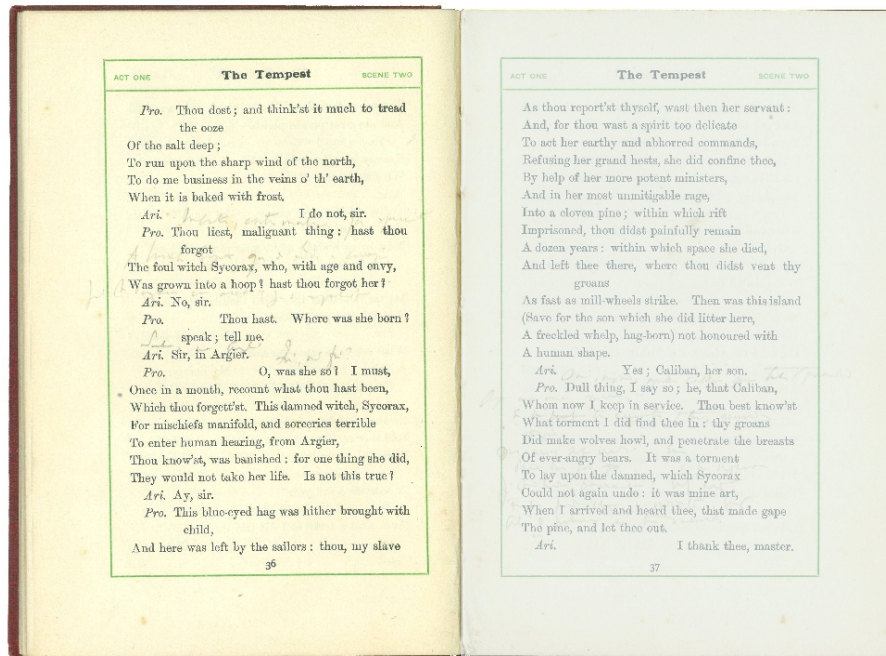 ACT ONE The Tempest SCENE TWO
Pro. Thou dost; and think'st it much to tread
the ooze
Of the salt deep;
To run upon the sharp wind of the north,
To do me business in the veins o' th' earth,
When it is baked with frost.
Ari. I do not, sir.
Pro. Thou liest, malignant thing: hast thou
forgot
The foul witch Sycorax, who, with age and envy,
Was grown into a hoop? hast thou forgot her?
Ari. No, sir.
Pro. Thou hast. Where was she born?
speak; tell me.
Ari. Sir, in Argier.
Pro. O, was she so? I must,
Once in a month, recount what thou hast been,
Which thou forgett'st. This damned witch, Sycorax,
For mischiefs manifold, and sorceries terrible
To enter human hearing, from Argier,
Thou know'st, was banished: for one thing she did,
They would not take her life. Is not this true?
Ari. Ay, sir.
Pro. This blue-eyed hag was hither brought with
child,
And here was left by the sailors: thou, my slave
36
ACT ONE The Tempest SCENE TWO
As thou report'st thyself, wast then her servant:
And, for thou wast a spirit too delicate
To act her earthy and abhorred commands,
Refusing her grand hests, she did confine thee,
By help of her more potent ministers,
And in her most unmitigable rage,
Into a cloven pine; within which rift
Imprisoned, thou didst painfully remain
A dozen years: within which space she died,
And left thee there, where thou didst vent thy
groans
As fast as mill-wheels strike. Then was this island
(Save for the son which she did litter here,
A freckled whelp, hag-born) not honoured with
A human shape.
Ari. Yes; Caliban, her son.
Pro. Dull thing, I say so; he, that Caliban,
Whom now I keep in service. Thou best know'st
What torment I did find thee in: thy groans
Did make wolves howl, and penetrate the breasts
Of ever-angry bears. It was a torment
To lay upon the damned, which Sycorax
Could not again undo: it was mine art,
When I arrived and heard thee, that made gape
The pine, and let thee out.
Ari. I thank thee, master.
37